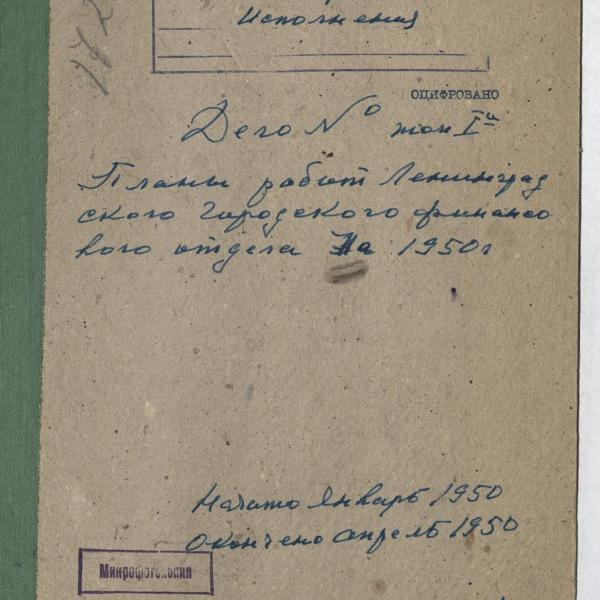 Исполнения
ОЦИФРОВАНО
Дело № том Iй
Планы работ Ленинград
ского городского финансо
вого отдела на 1950г
Начато Январь 1950
Окончено апрель 1950
Микрофотокопия